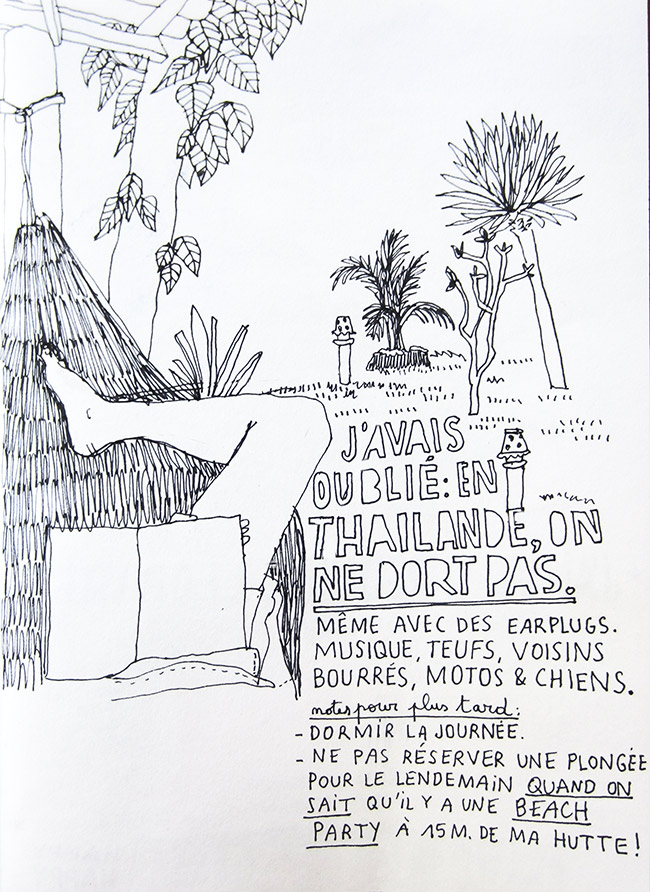 J'AVAIS
OUBLIÉ: EN
THAILANDE, ON
NE DORT PAS.
MÊME AVEC DES EARPLUGS.
MUSIQUE, TEUFS, VOISINS
BOURRÉS, MOTOS & CHIENS.
notes pour plus tard:
- DORMIR LA JOURNÉE.
- NE PAS RÉSERVER UNE PLONGÉE
POUR LE LENDEMAIN QUAND ON
SAIT QU'IL Y A UNE BEACH
PARTY À 15M. DE MA HUTTE!